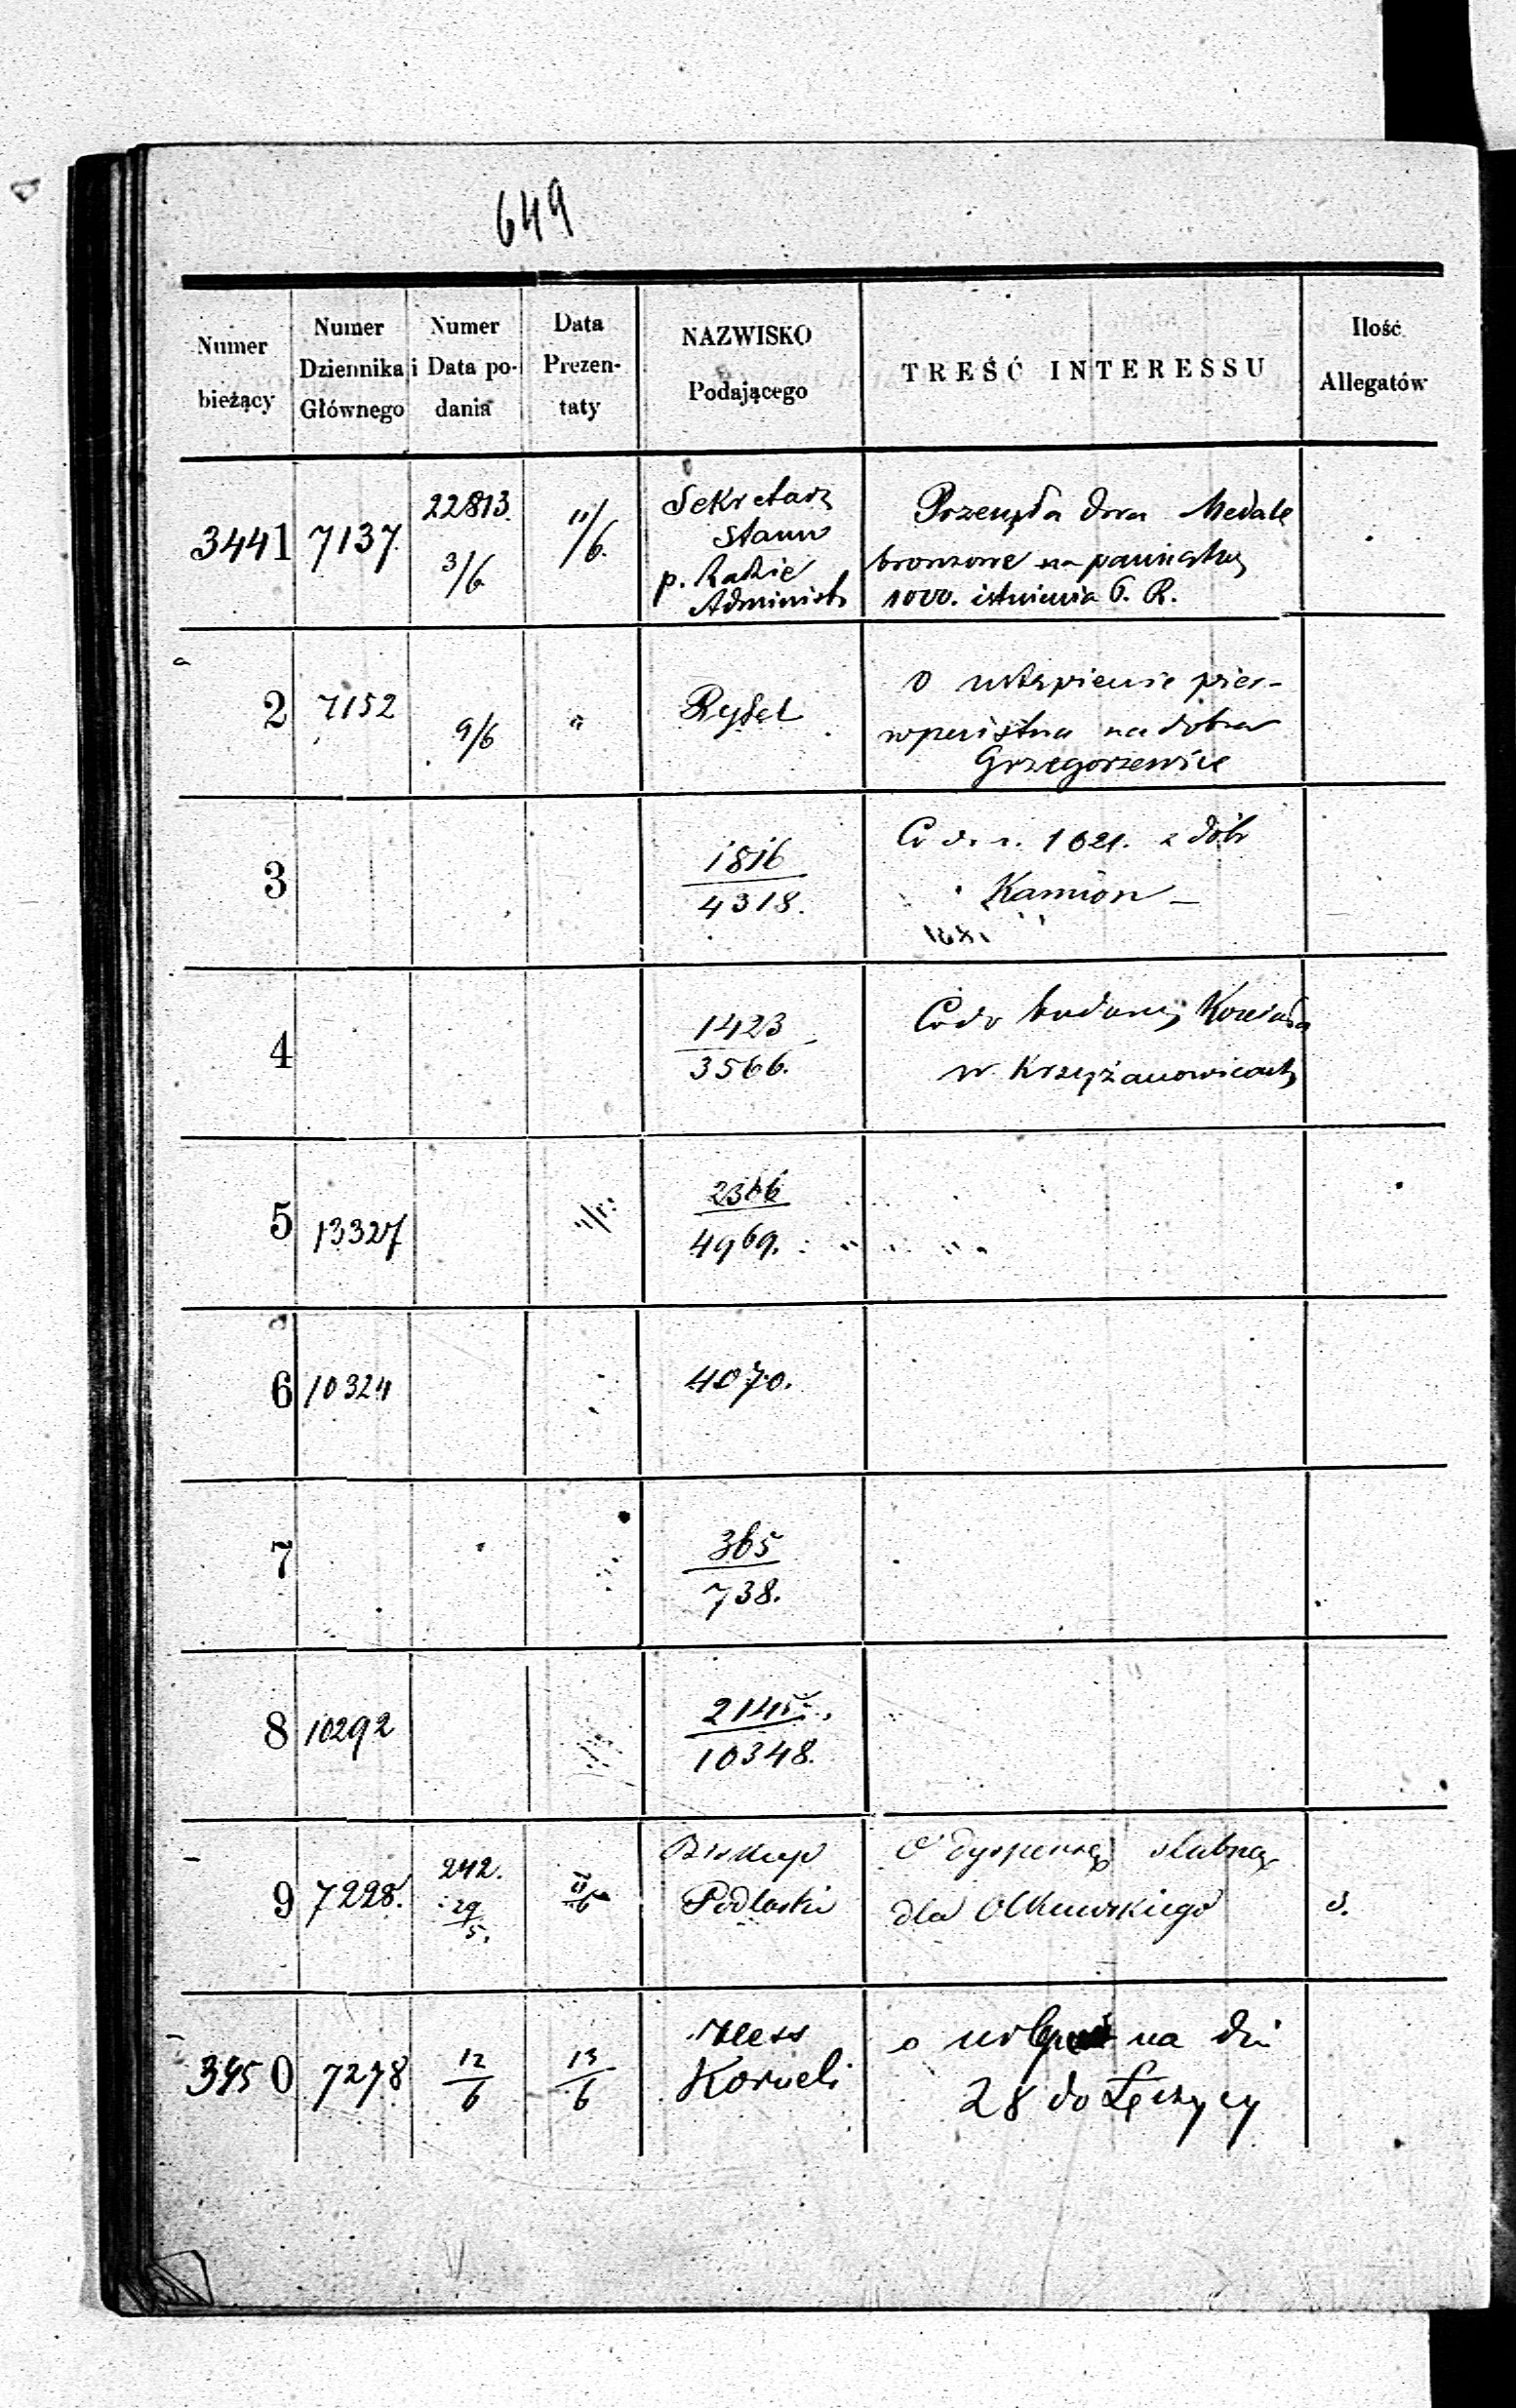 649
Numer bieżący
Numer Dziennika Głównego
Numer i Data podania
Data Prezentaty
NAZWISKO Podającego
TREŚĆ INTERESSU
Ilość Allegatów
3441 7137 22813 3/6 11/6
Sekretarz
Stanu
p. Radzie
Administr
Przesyła dwa Medale
bronzowe na pamiątkę
1000. istnienia C. R.
2 7152 9/6 "
Rydel
O ustąpienie pier-
na dobra
Grzegorzewice
3
1816
4318.
Co d. r. 1621. z dóbr
Kamion —
4
1423
3566.
Co do budowy Kościoła
w Krzyżanowicach
5 13327
2366
4969.
6 10324
4070.
7
365
738.
8 10292
2145.
10348.
9 7228. 242. 29/5.
Biskup
Podlaski
O dyspensę ślubną
dla Olkuwskiego
3.
3450 7278 12/6 13/6
Hess
Korneli
o urlop na dni
28 do Łęczycy